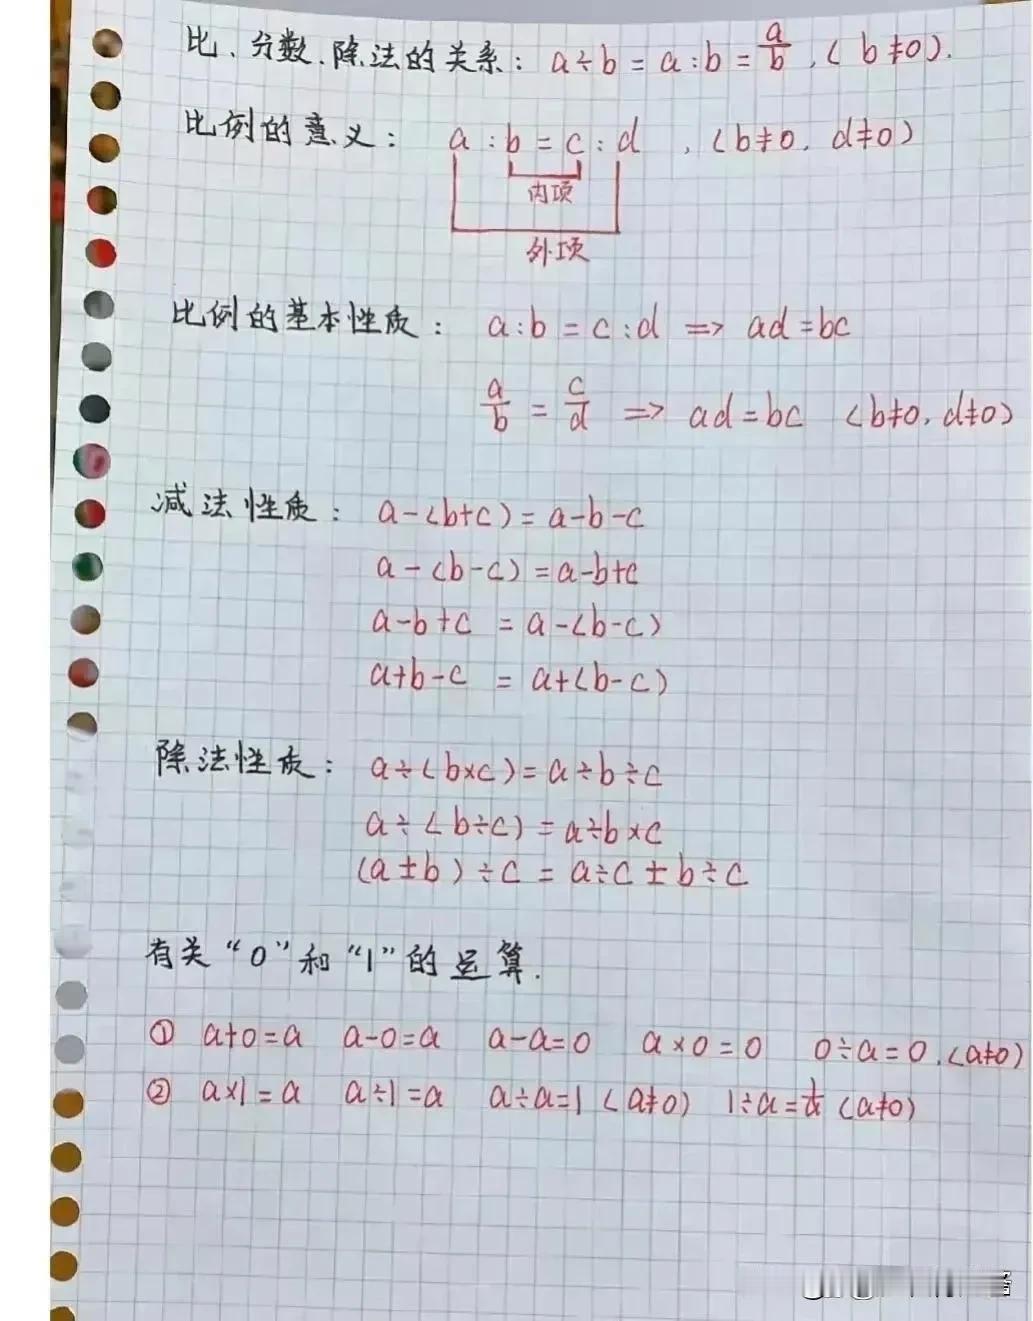 比、分数、除法的关系：a÷b=a:b=a/b，(b≠0).
比例的意义：a:b=c:d，(b≠0，d≠0)
内项
外项
比例的基本性质：a:b=c:d => ad=bc
a/b=c/d => ad=bc (b≠0，d≠0)
减法性质：a-(b+c)=a-b-c
a-(b-c)=a-b+c
a-b+c=a-(b-c)
a+b-c=a+(b-c)
除法性质：a÷(b×c)=a÷b÷c
a÷(b÷c)=a÷b×c
(a±b)÷c=a÷c±b÷c
有关“0”和“1”的运算.
① a+0=a a-0=a a-a=0 a×0=0 0÷a=0.(a≠0)
② a×1=a a÷1=a a÷a=1 (a≠0) 1÷a=1/a (a≠0)